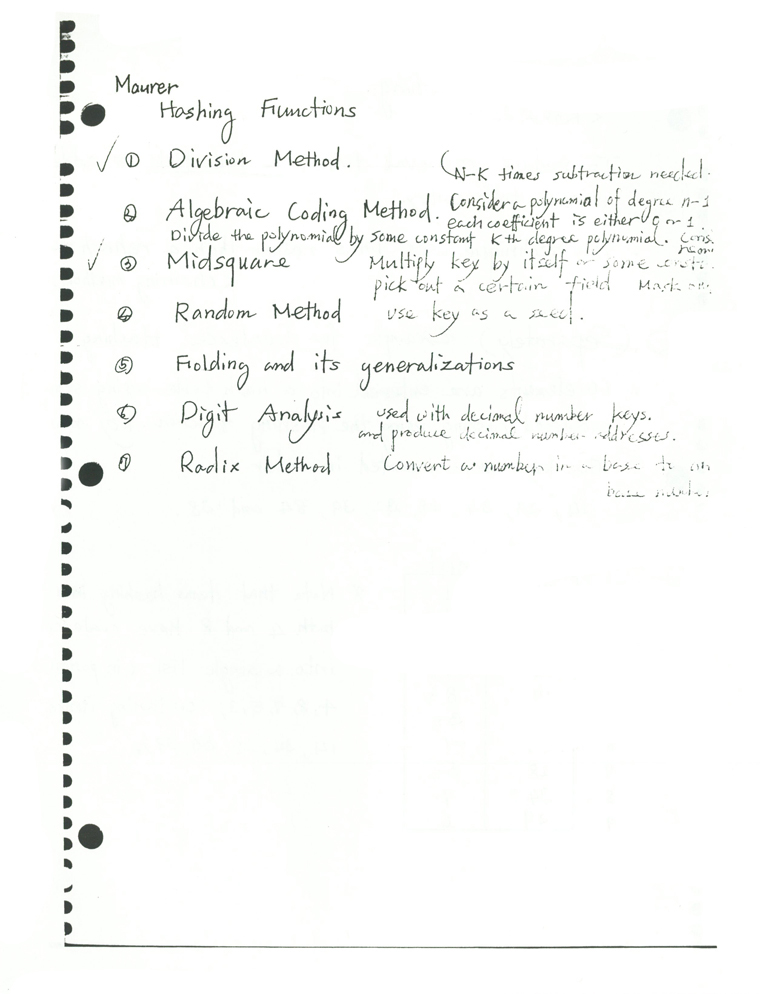 Maurer
Hashing Functions
✓ ① Division Method. (N-K times subtraction needed.
② Algebraic Coding Method. Consider a polynomial of degree n-1
each coefficient is either 0 or 1.
Divide the polynomial by some constant Kth degree polynomial.
✓ ③ Midsquare Multiply key by itself or some
pick out a certain field
④ Random Method use key as a seed.
⑤ Folding and its generalizations
⑥ Digit Analysis used with decimal number keys.
and produce decimal number addresses.
⑦ Radix Method Convert a number in a base to
base